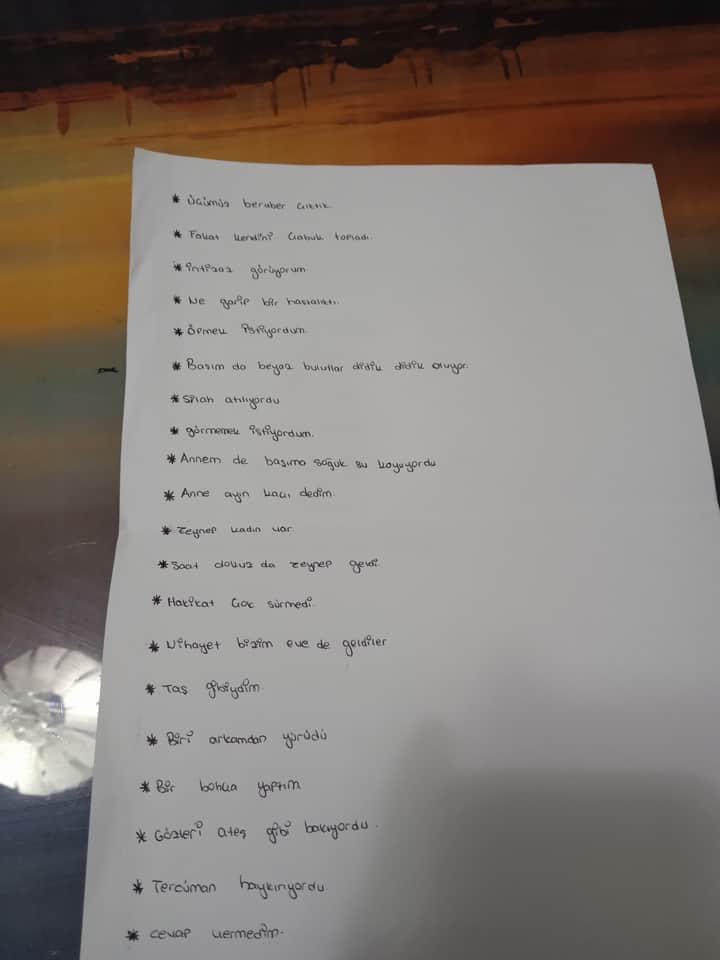 * Üçümüz beraber çıktık.
* Fakat kendini çabuk topladı.
* intizaz görüyorum.
* Ne garip bir hastalıktı.
* Öpmek istiyordum.
* Başım da beyaz bulutlar didik didik oluyor.
* Silah atılıyordu
* görmemek istiyordum.
* Annem de başıma soğuk su koyuyordu
* Anne ayın kaçı dedim.
* Zeynep kadın var.
* Saat dokuz da zeynep geldi.
* Hakikat çok sürmedi.
* Nihayet bizim eve de geldiler
* Taş gibiydim.
* Biri arkamdan yürüdü
* Bir bohça yaptım
* Gözleri ateş gibi bakıyordu.
* Tercüman haykırıyordu.
* Cevap vermedim.